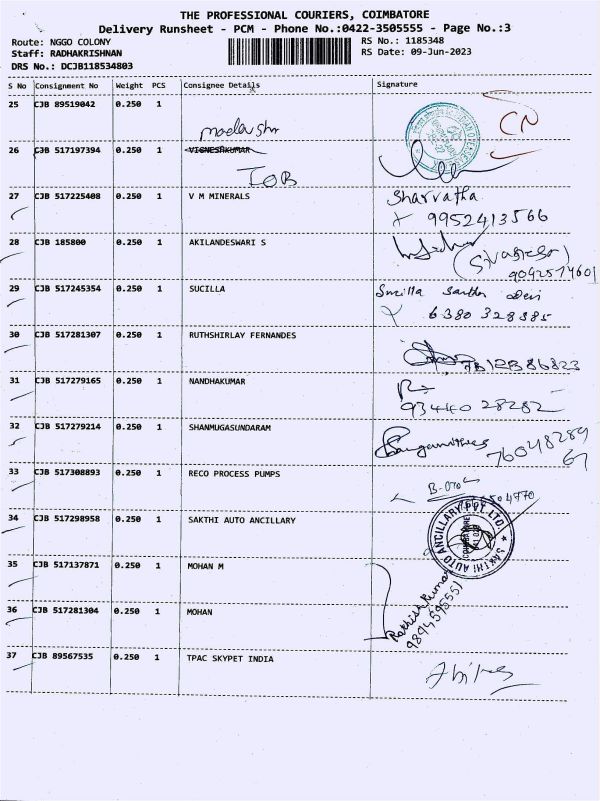 THE PROFESSIONAL COURIERS, COIMBATORE
Delivery Runsheet - PCM - Phone No.:0422-3505555 - Page No.:3
Route: NGGO COLONY RS No.: 1185348
Staff: RADHAKRISHNAN RS Date: 09-Jun-2023
DRS No.: DCJB118534803
S No Consignment No Weight PCS Consignee Details Signature
25 CJB 89519042 0.250 1
CN
26 CJB 517197394 0.250 1 VIGNESHKUMAR
IOB
27 CJB 517225408 0.250 1 V M MINERALS Sharvatha
9952413566
28 CJB 185800 0.250 1 AKILANDESWARI S
29 CJB 517245354 0.250 1 SUCILLA Sucilla Santha Devi
6380 328385
30 CJB 517281307 0.250 1 RUTHSHIRLAY FERNANDES
31 CJB 517279165 0.250 1 NANDHAKUMAR
93440 28282
32 CJB 517279214 0.250 1 SHANMUGASUNDARAM
76048289
67
33 CJB 517308893 0.250 1 RECO PROCESS PUMPS
34 CJB 517298958 0.250 1 SAKTHI AUTO ANCILLARY
SAKTHI AUTO ANCILLARY PVT LTD.
COIMBATORE
35 CJB 517137871 0.250 1 MOHAN M
36 CJB 517281304 0.250 1 MOHAN
Rathish Kumar
9894595551
37 CJB 89567535 0.250 1 TPAC SKYPET INDIA